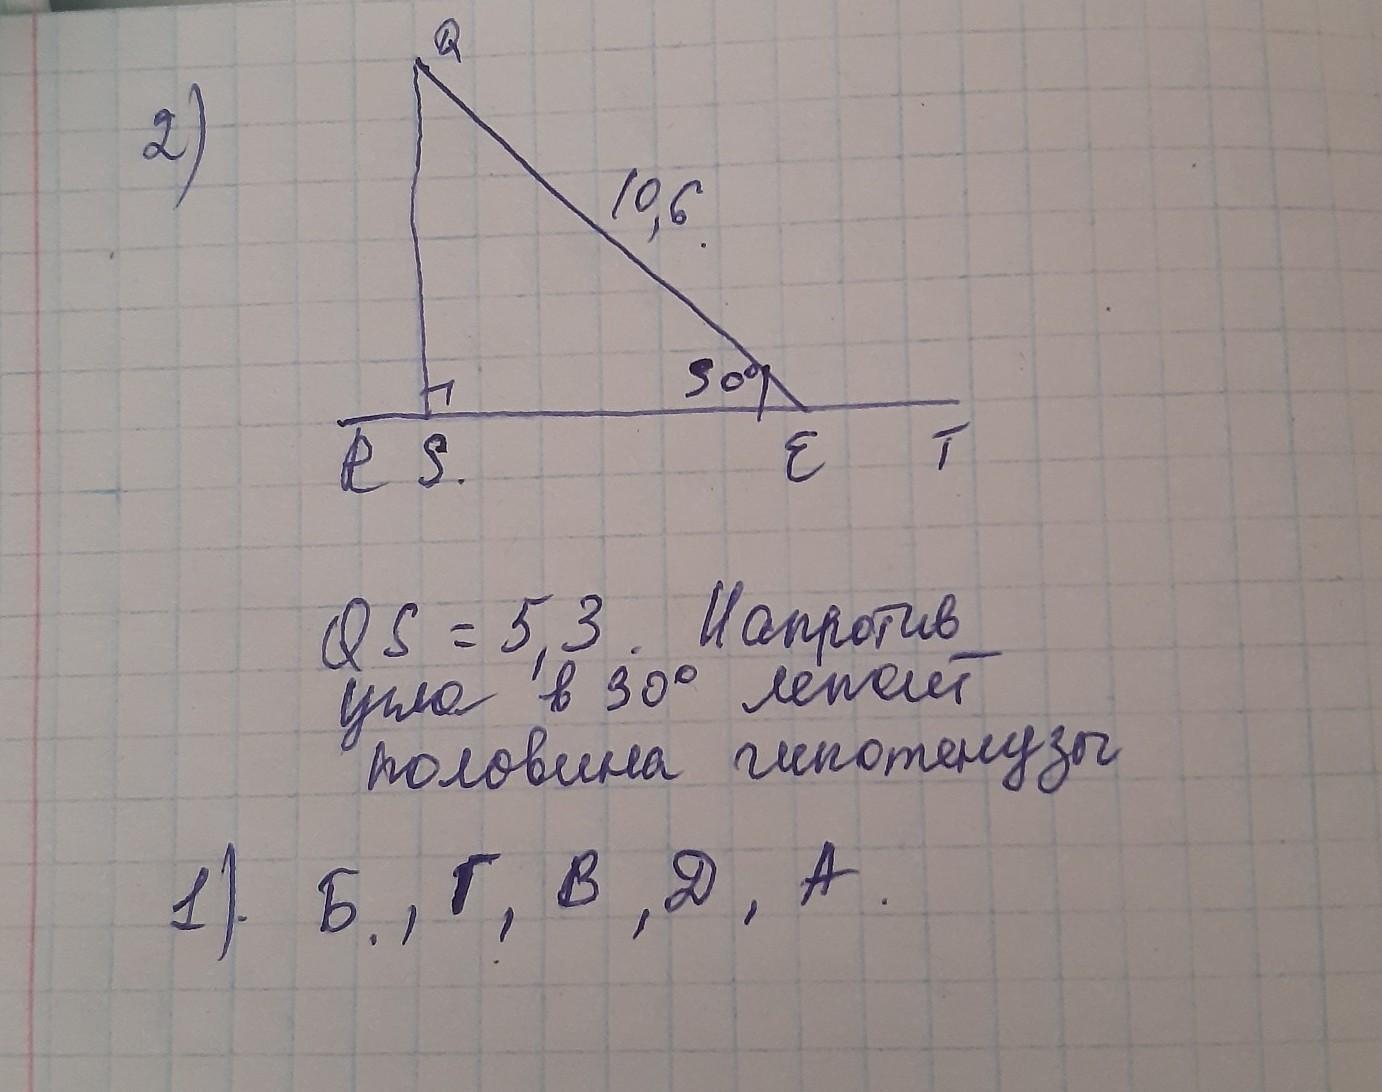 2)
Q
10,6
30°
R S. E T
QS = 5,3. Напротив
угла в 30° лежит
половина гипотенузы
1). Б., Г, В, Д, А.